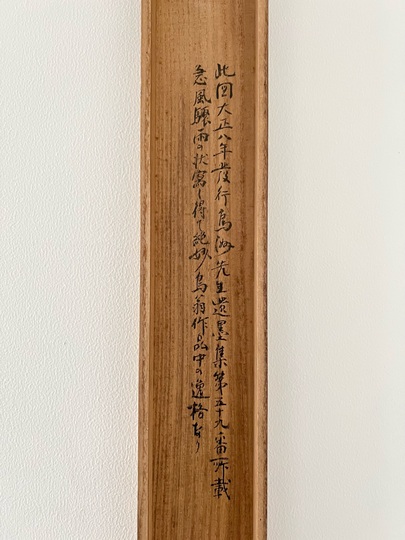 此図大正八年発行烏洲先生遺墨集第五十九番所載
急風驟雨の状寫し得て絶妙烏翁作品中の逸格なり